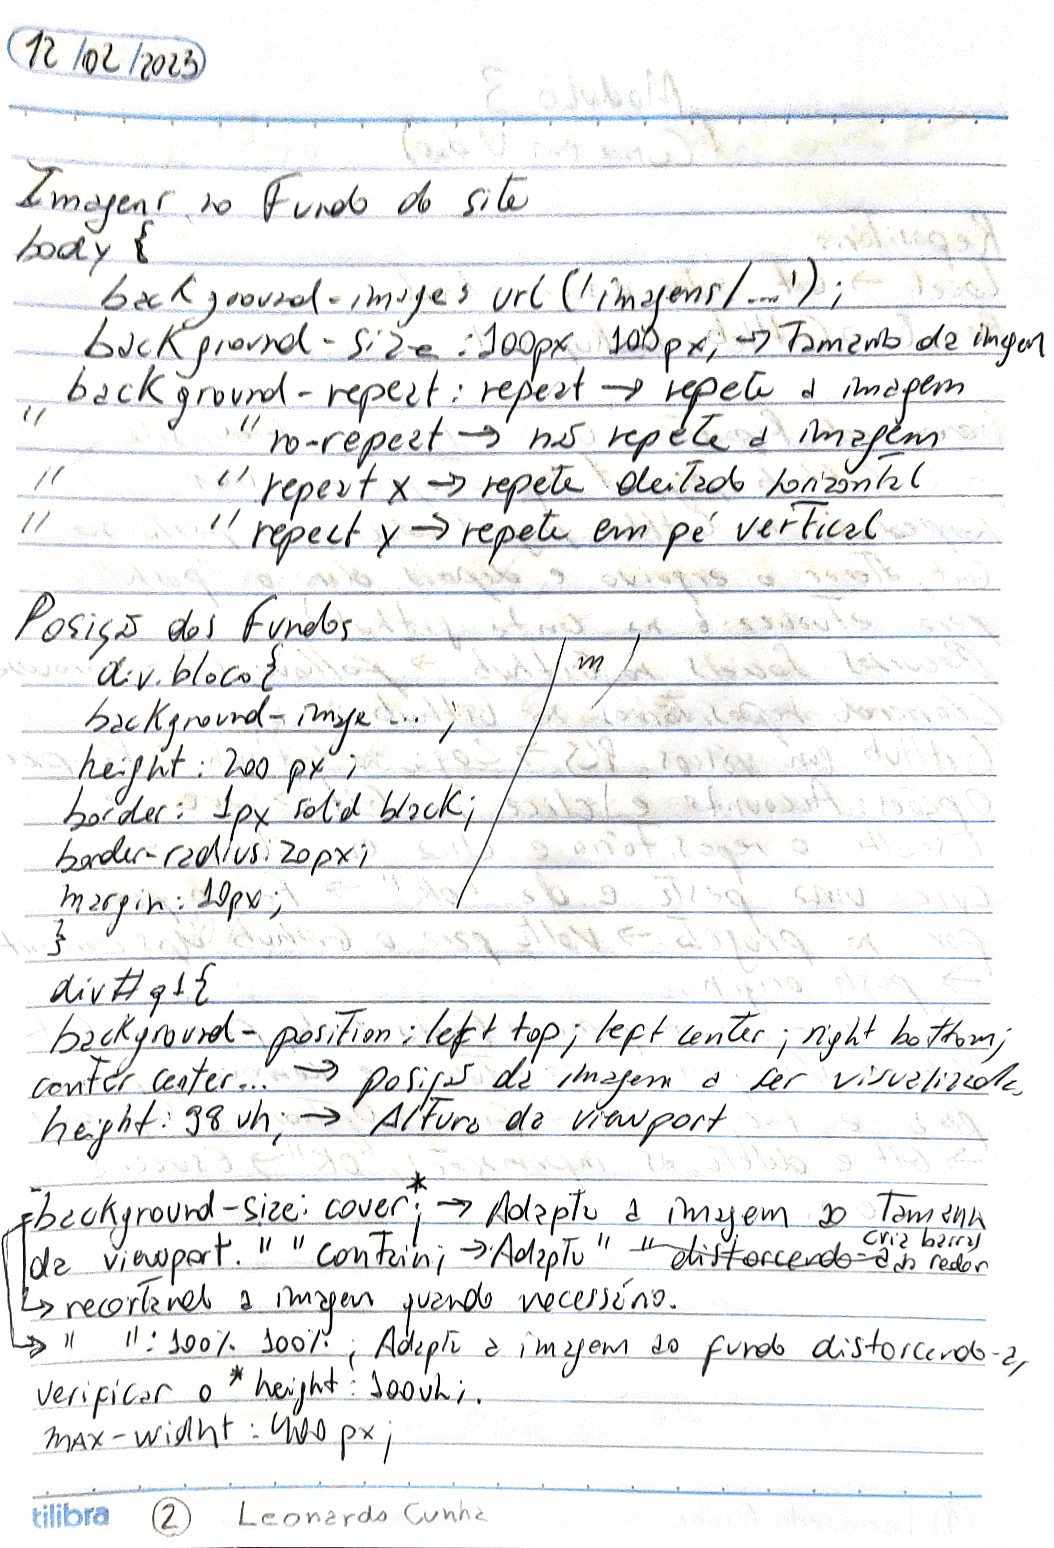 12/02/2023
Imagens no Fundo do site
body {
background-image: url('imagens/...');
background-size: 100px 100px; → Tamanho da imagem
background-repeat: repeat → repete a imagem
" " no-repeat → não repete a imagem
" " repeat x → repete deitado horizontal
" " repeat y → repete em pé vertical
Posição dos Fundos
div.bloco{
m
background-image ... ;
height: 200 px;
border: 1px solid black;
border-radius: 20px;
margin: 10px;
}
div#q1{
background-position: left top; left center; right bottom;
center center... → posição da imagem a ser visualizada
height: 98 vh; → Altura da viewport
background-size: cover*; → Adapta a imagem ao Tamanho
da viewport. " " contain; → Adapta " " distorcendo-a cria barras ao redor
↳ recortando a imagem quando necessário.
→ " ": 100% 100%; Adapta a imagem ao fundo distorcendo-a,
verificar o * height: 100vh;.
max-widht: 400 px;
tilibra 2 Leonardo Cunha